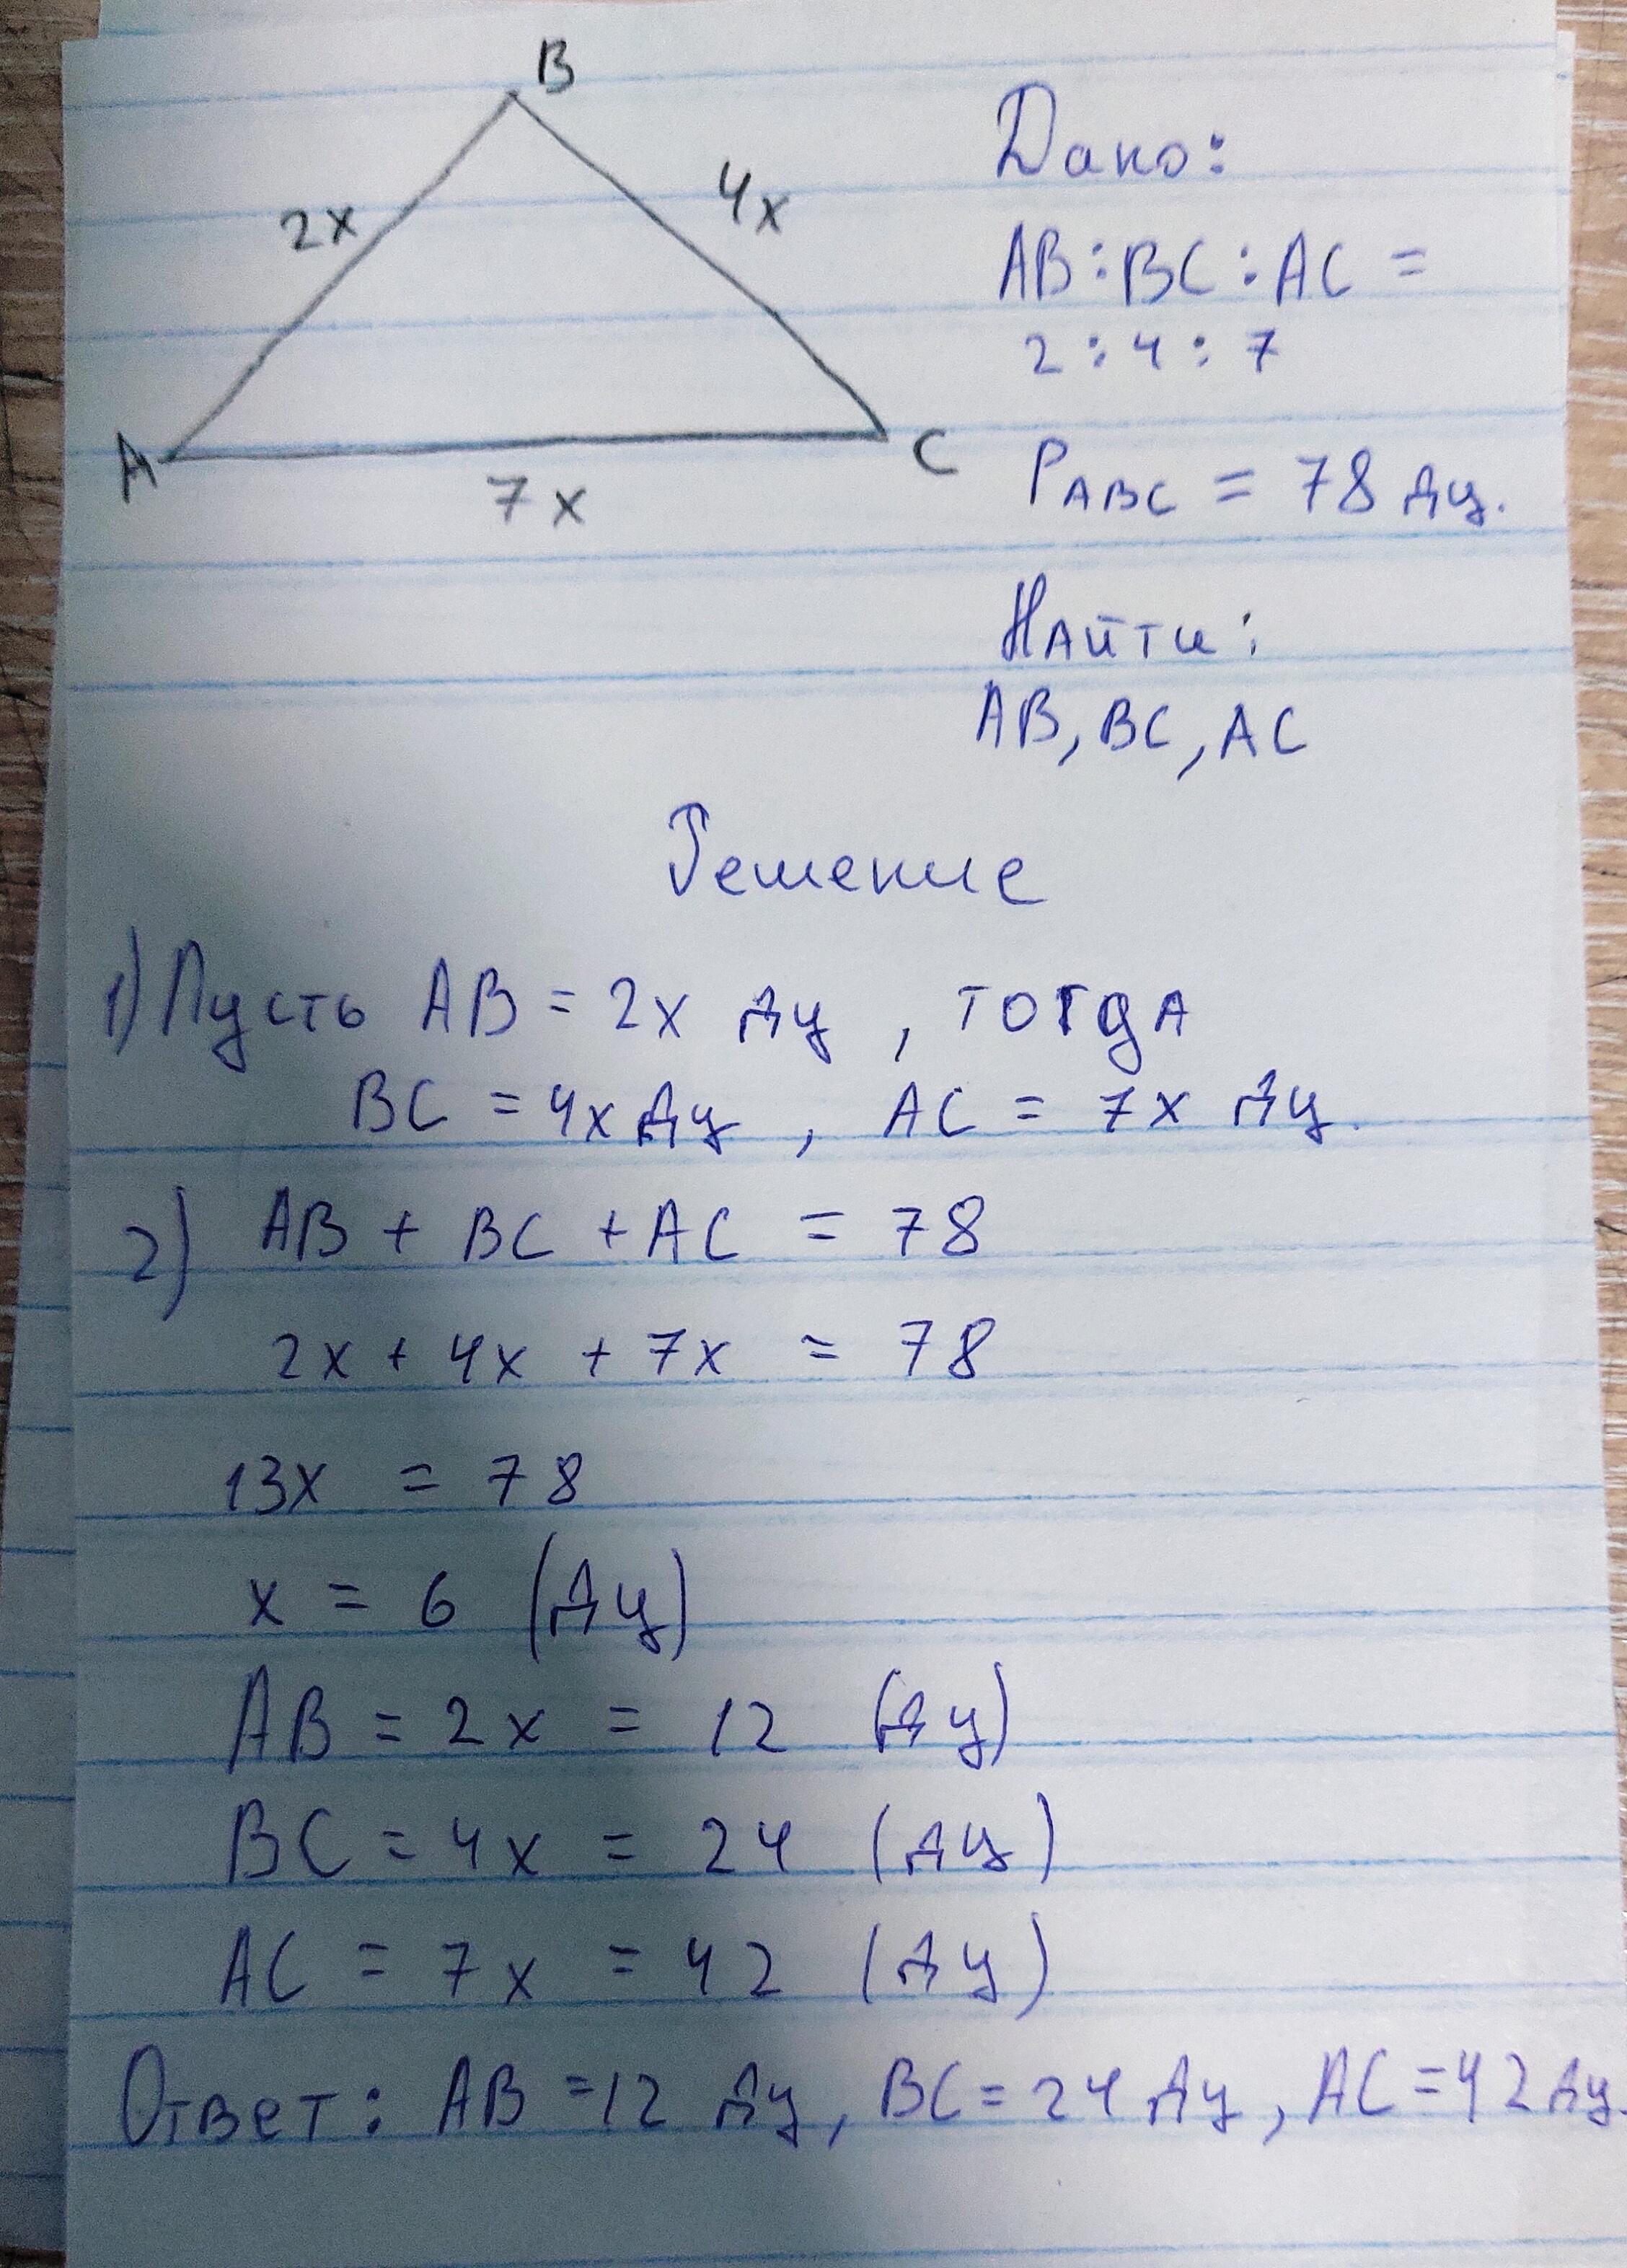 B
2x
4x
A
C
7x
Дано:
AB:BC:AC =
2:4:7
PABC = 78 дц.
Найти:
AB, BC, AC
Решение
1) Пусть AB = 2x дц, тогда
BC = 4x дц, AC = 7x дц.
2) AB + BC + AC = 78
2x + 4x + 7x = 78
13x = 78
x = 6 (дц)
AB = 2x = 12 (дц)
BC = 4x = 24 (дц)
AC = 7x = 42 (дц)
Ответ: AB = 12 дц, BC = 24 дц, AC = 42 дц.